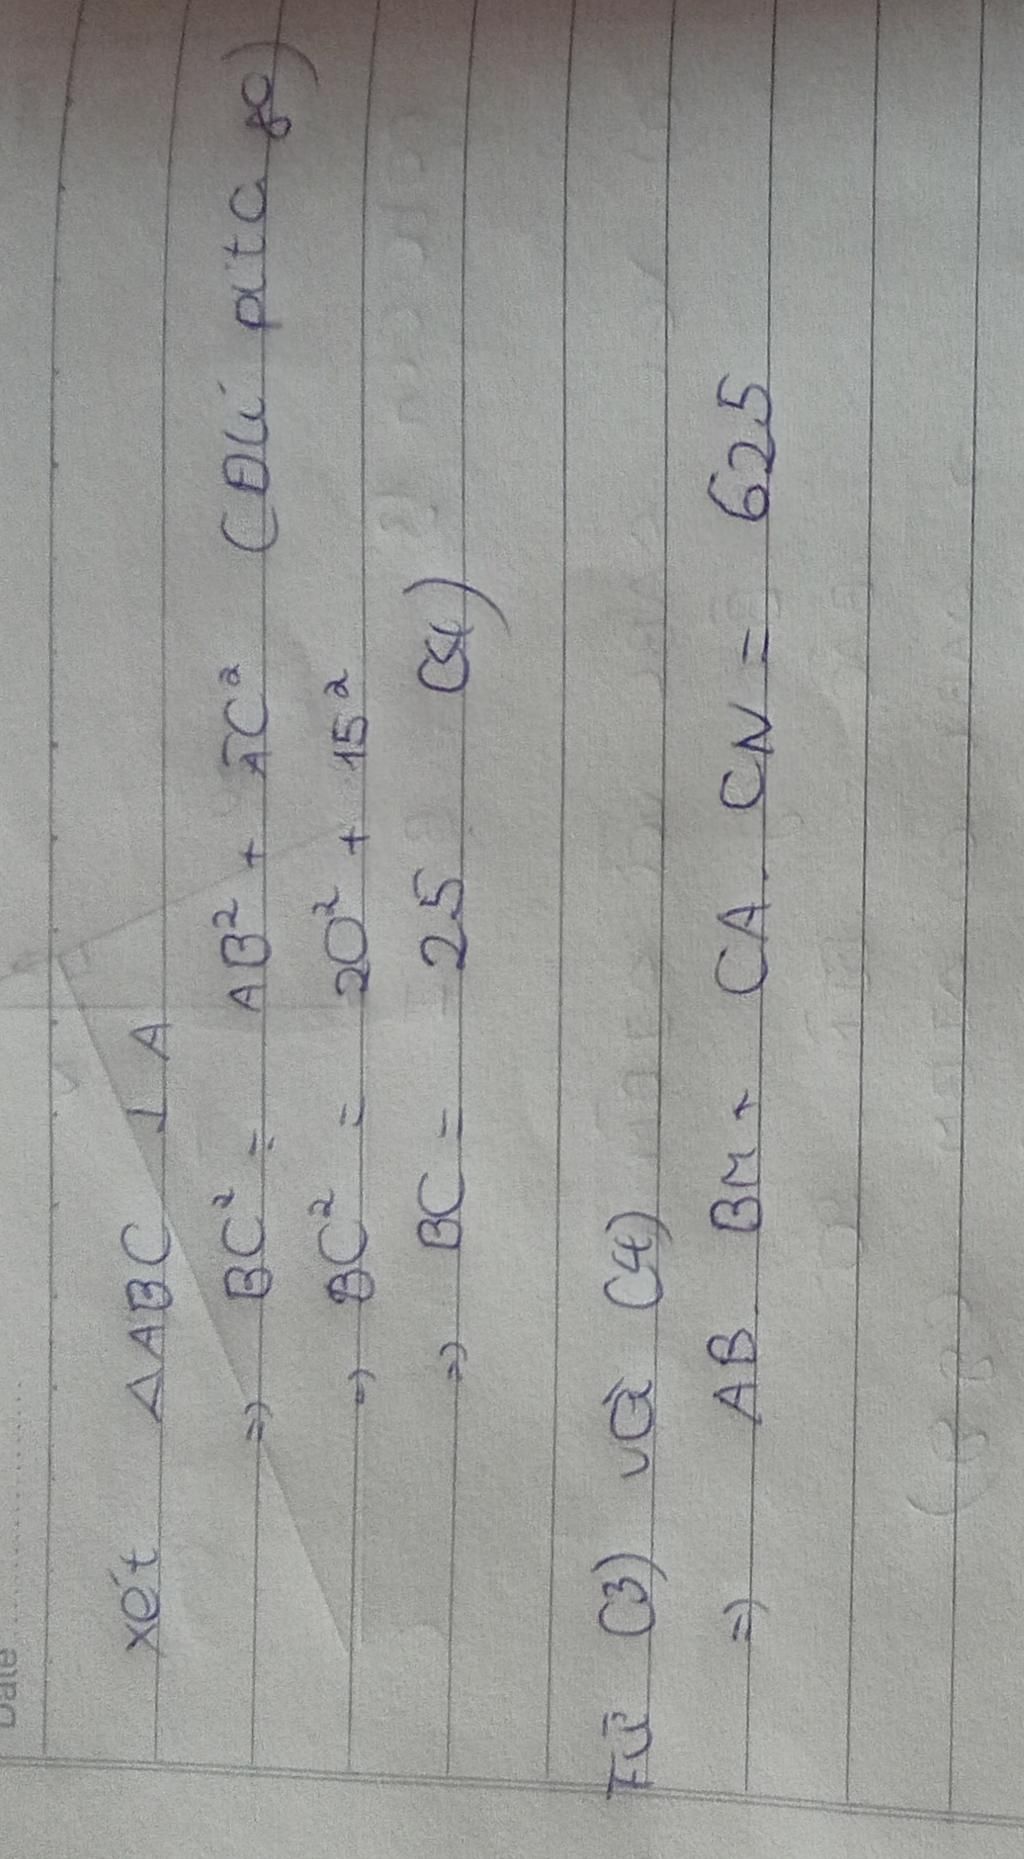 Date
xét ΔABC ⊥ A
=) BC² = AB² + AC² (Đlí pitago)
=) BC² = 20² + 15²
=) BC = 25 (4)
Từ (3) và (4)
=) AB. BM + CA. CN = 625